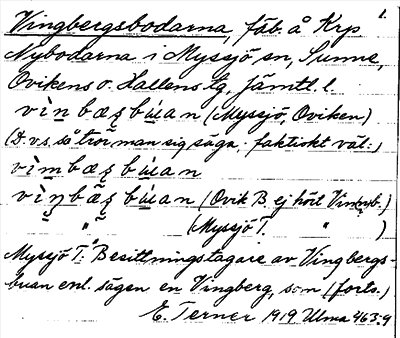 1.
Vingbergsbodarna, fäb. å Krp
Nybodarna i Myssjö sn, Sunne,
Ovikens o. Hallens tg, Jämtl. l.
vìn bæʂ búan (Myssjö, Oviken)
(D.v.s. så tror man sig säga; faktiskt väl:)
vìm bæʂ búan
vìŋ bæ̃ʂ búan (Ovik B ej hört Ving-b.)
" (Myssjö T. " )
Myssjö T: Besittningstagare av Vingbergs-
buan enl. sägen en Vingberg, som (forts.)
E. Terner 1919 Ulma 463:9